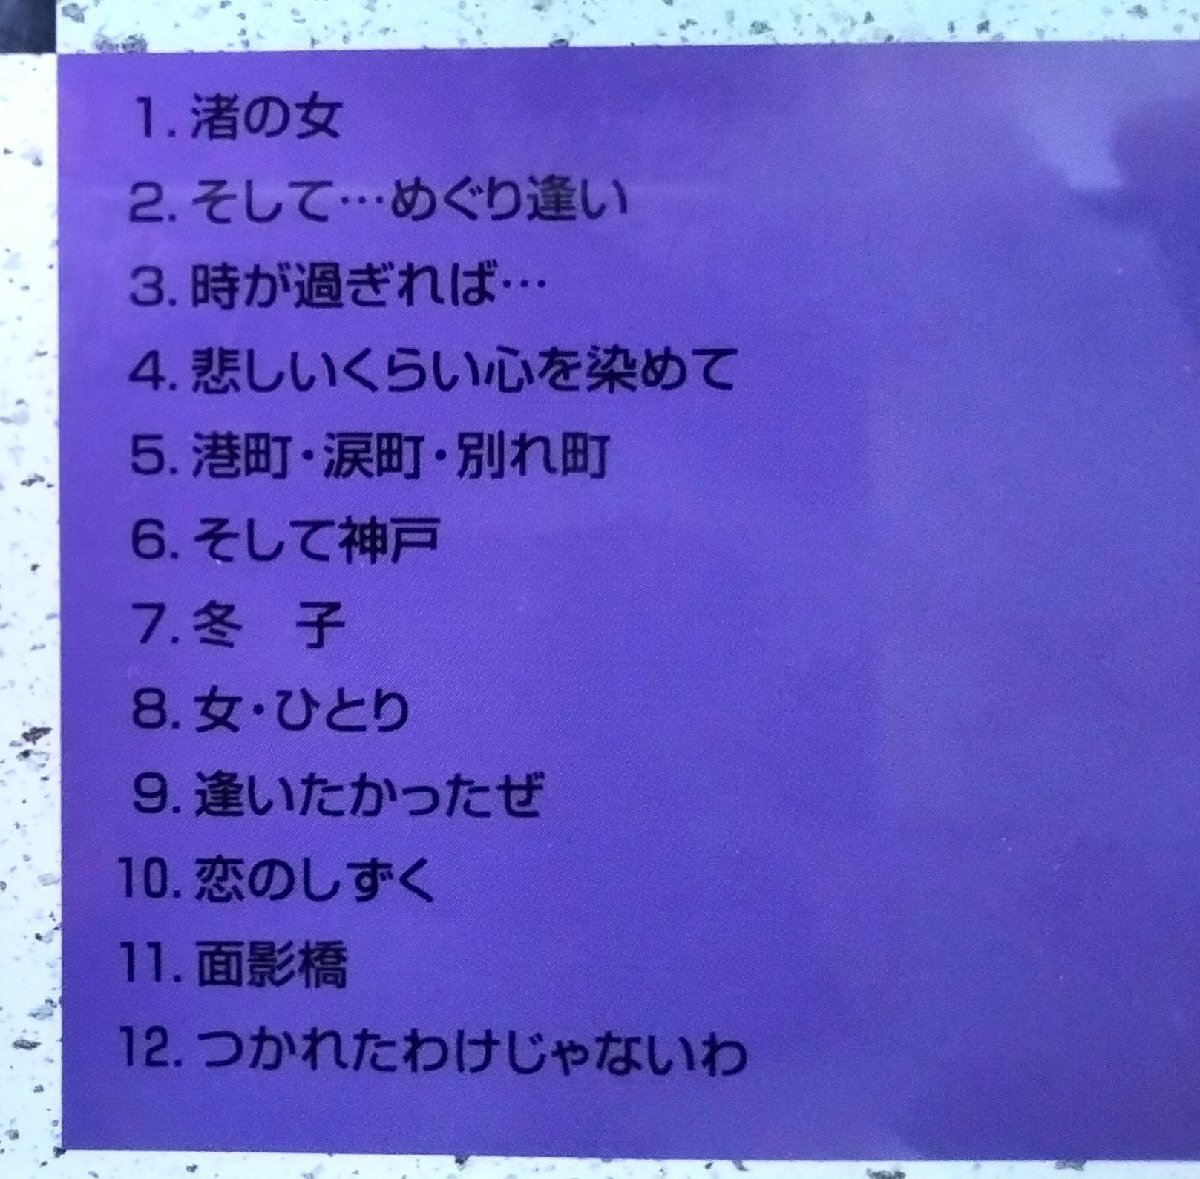 1. 渚の女
2. そして…めぐり逢い
3. 時が過ぎれば…
4. 悲しいくらい心を染めて
5. 港町・涙町・別れ町
6. そして神戸
7. 冬　子
8. 女・ひとり
9. 逢いたかったぜ
10. 恋のしずく
11. 面影橋
12. つかれたわけじゃないわ